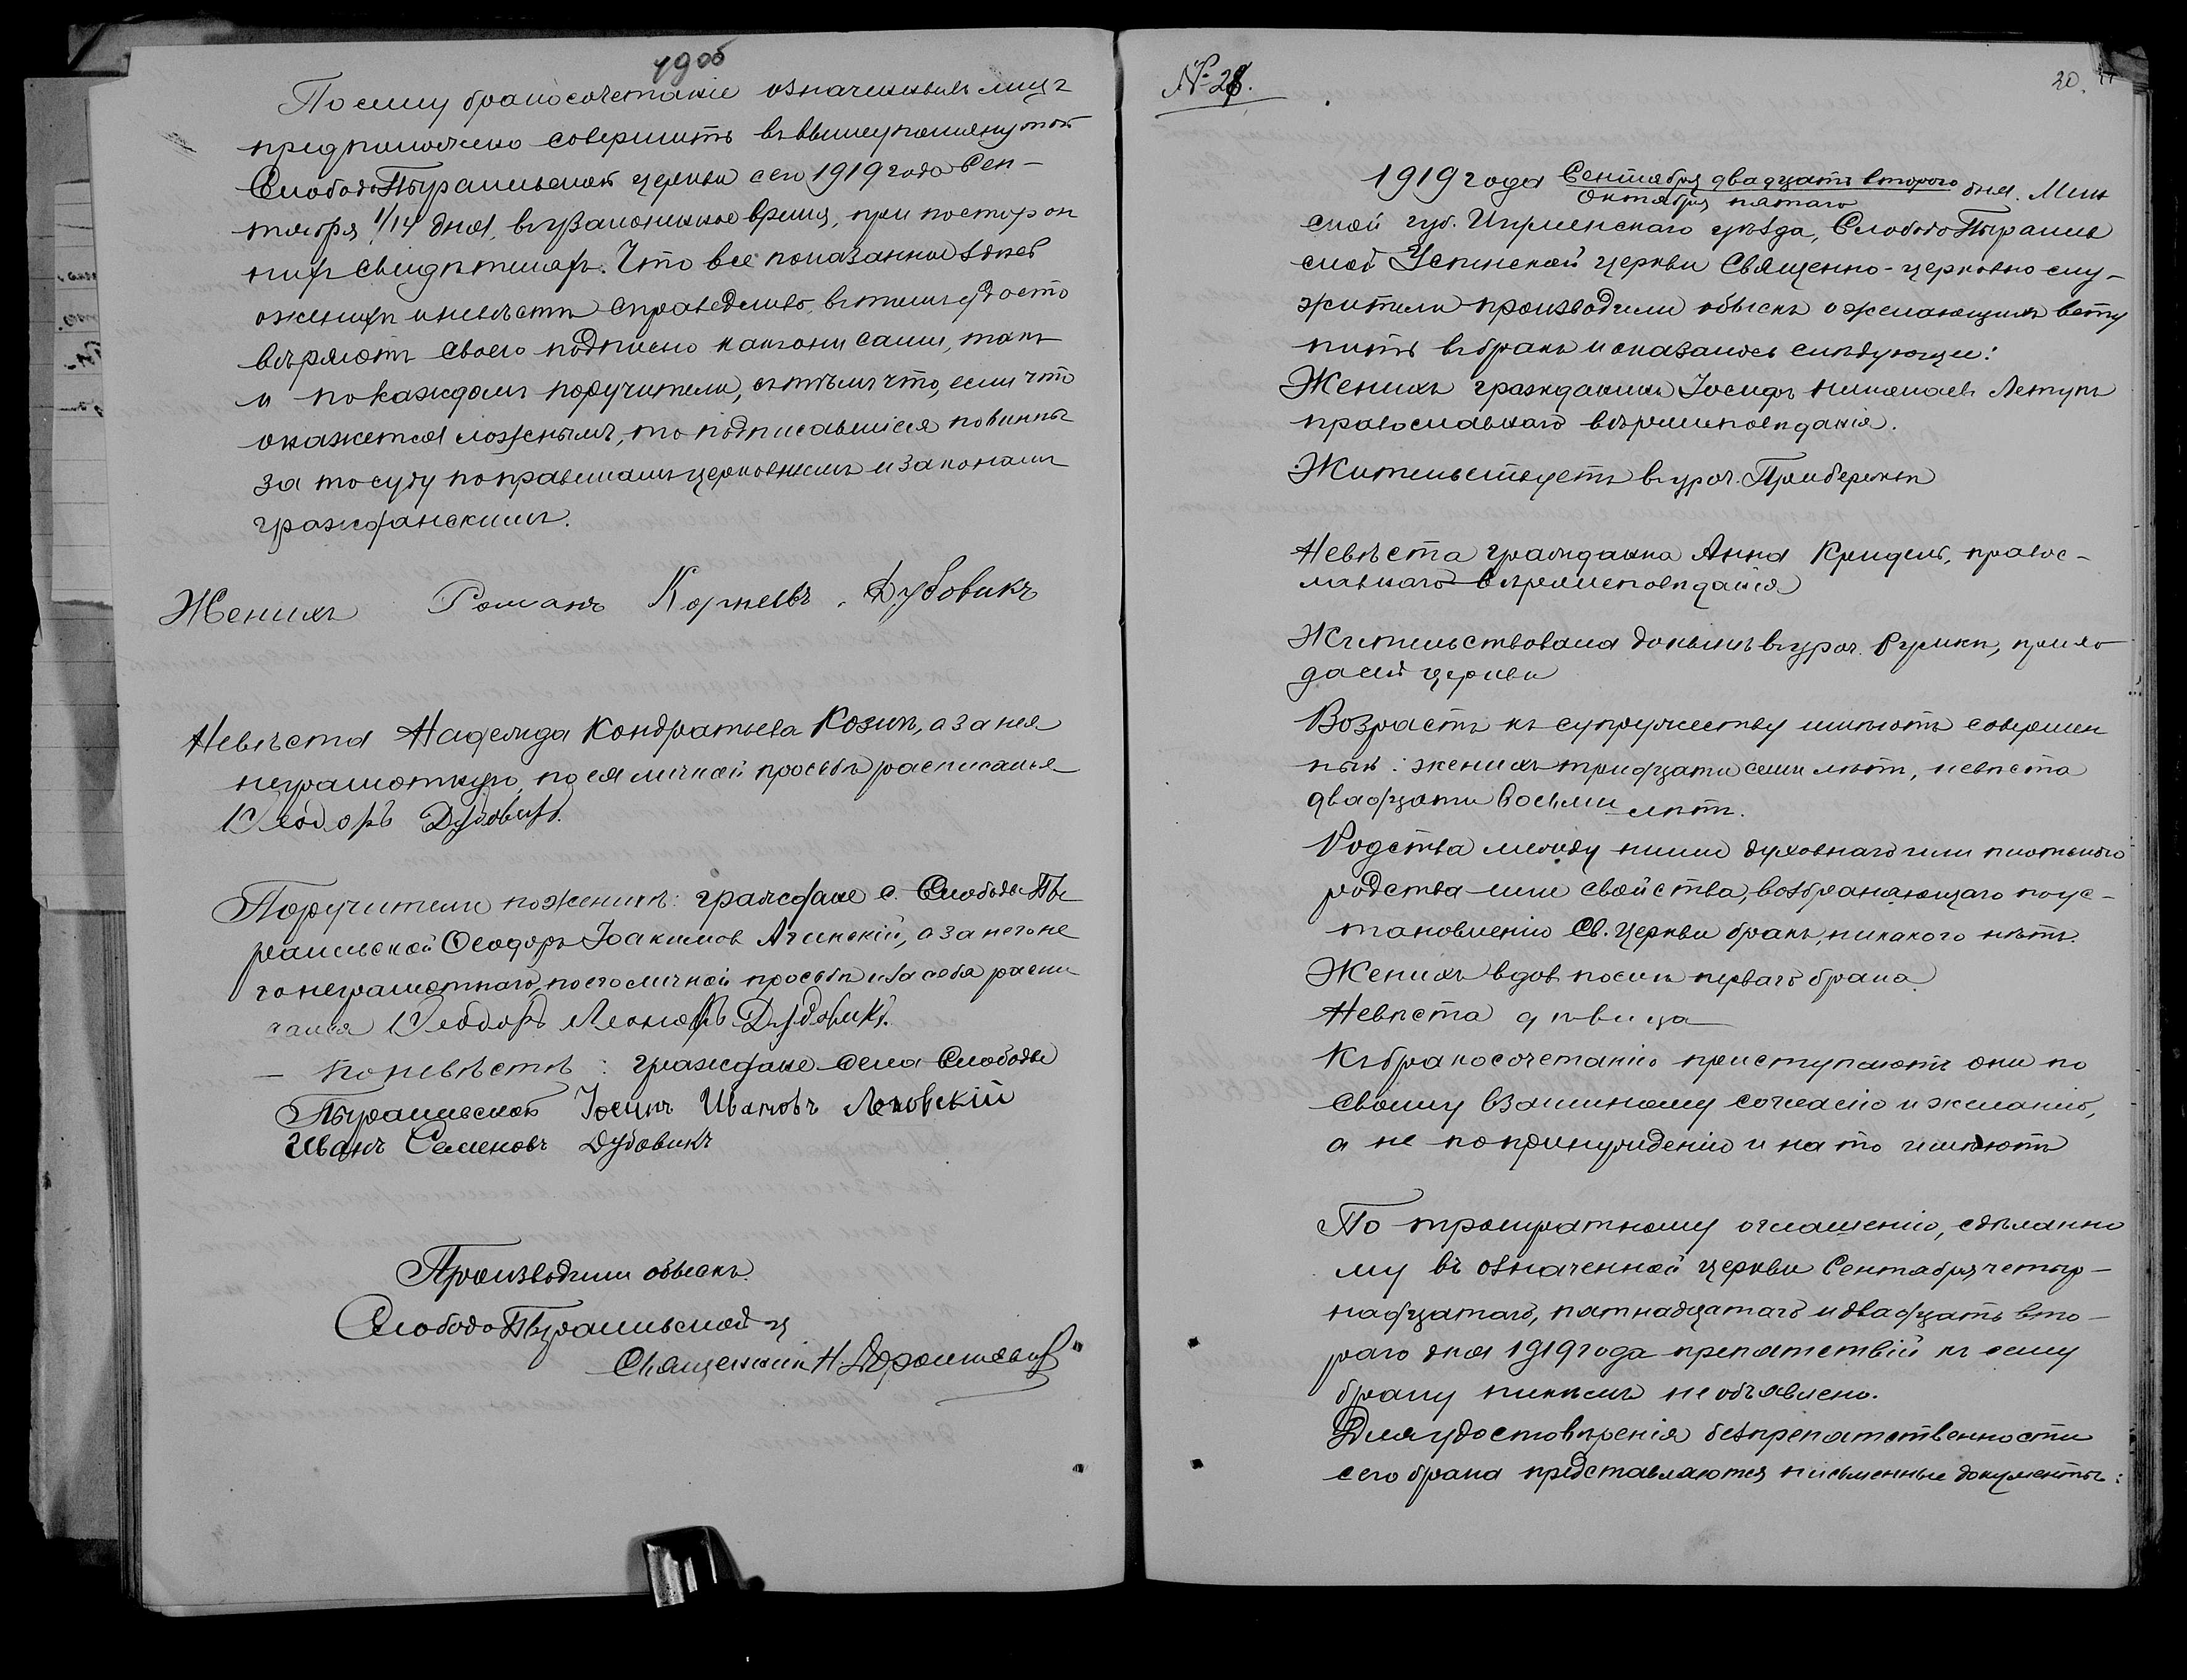 19об
По сему бракосочетаніе означенныхъ лицъ
предположено совершить въ вышеупомянутой
СлободоПырашевской церкви сего 1919 года Сен-
тября 1/14 дня, въ узаконенное время, при посторон
нихъ свидѣтеляхъ. Что все показанное здѣсь
о женихѣ и невѣстѣ справедливо, въ томъ удосто
вѣряютъ своею подписью какъ они сами, такъ
и по каждомъ поручители, съ тѣмъ что, если что
окажется ложнымъ, то подписавшіеся повинны
за то суду по правиламъ церковнымъ и законамъ
гражданскимъ.
Женихъ Романъ Корнеевъ Дубовикъ
Невѣста Надежда Кондратьева Козикъ, а за нея
неграмотную, по ея личной просьбѣ расписался
Ѳеодоръ Дубовикъ.
Поручители по женихѣ: граждане с. Слободы Пы
рашевской Ѳеодоръ Іоакимовъ Ачинскій, а за него не
го неграмотнаго, по его личной просьбѣ и за себя распи
сался Ѳеодоръ Дубовикъ.
— по невѣстѣ: граждане села Слободы
Пырашевской Іосифъ Ивановъ Лоновскій
Иванъ Семеновъ Дубовикъ
Производили обыскъ.
СлободоПырашевской ц
Священникъ Н.
№ 28.
20.
1919 года Сентября двадцать второго дня. Мин
Октября пятаго
ской губ. Игуменскаго уѣзда, СлободоПырашев
ской Успенской церкви Священно-церковно слу-
жители производили обыскъ о желающихъ всту
пить въ бракъ и оказалось слѣдующее:
Женихъ гражданинъ Іосифъ Николаевъ Летунъ
православнаго вѣроисповѣданія.
Жительствуетъ въ уроч. Прибережьи
Невѣста гражданка Анна Кридель, правос-
лавнаго вѣроисповѣданія
Жительствовала донынѣ въ уроч. прихо
да сей церкви
Возрастъ къ супружеству имѣютъ совершен
ный: женихъ тридцати семи лѣтъ, невѣста
двадцати восьми лѣтъ.
Родства между ними духовнаго или плотского
родства или свойства, возбраняющаго по ус-
тановленію Св. Церкви бракъ, никакого нѣтъ.
Женихъ вдовъ послѣ перваго брака
Невѣста дѣвица
Къ бракосочетанію приступаютъ они по
своему взаимному согласію и желанію,
а не по принужденію и на то имѣютъ
По троекратному оглашенію, сдѣланно
му въ означенной церкви Сентября четыр-
надцатаго, пятнадцатаго и двадцать вто-
раго дня 1919 года препятствій къ сему
браку никѣмъ не объявлено.
Для удостовѣренія безпрепятственности
сего брака представляются письменные документы: